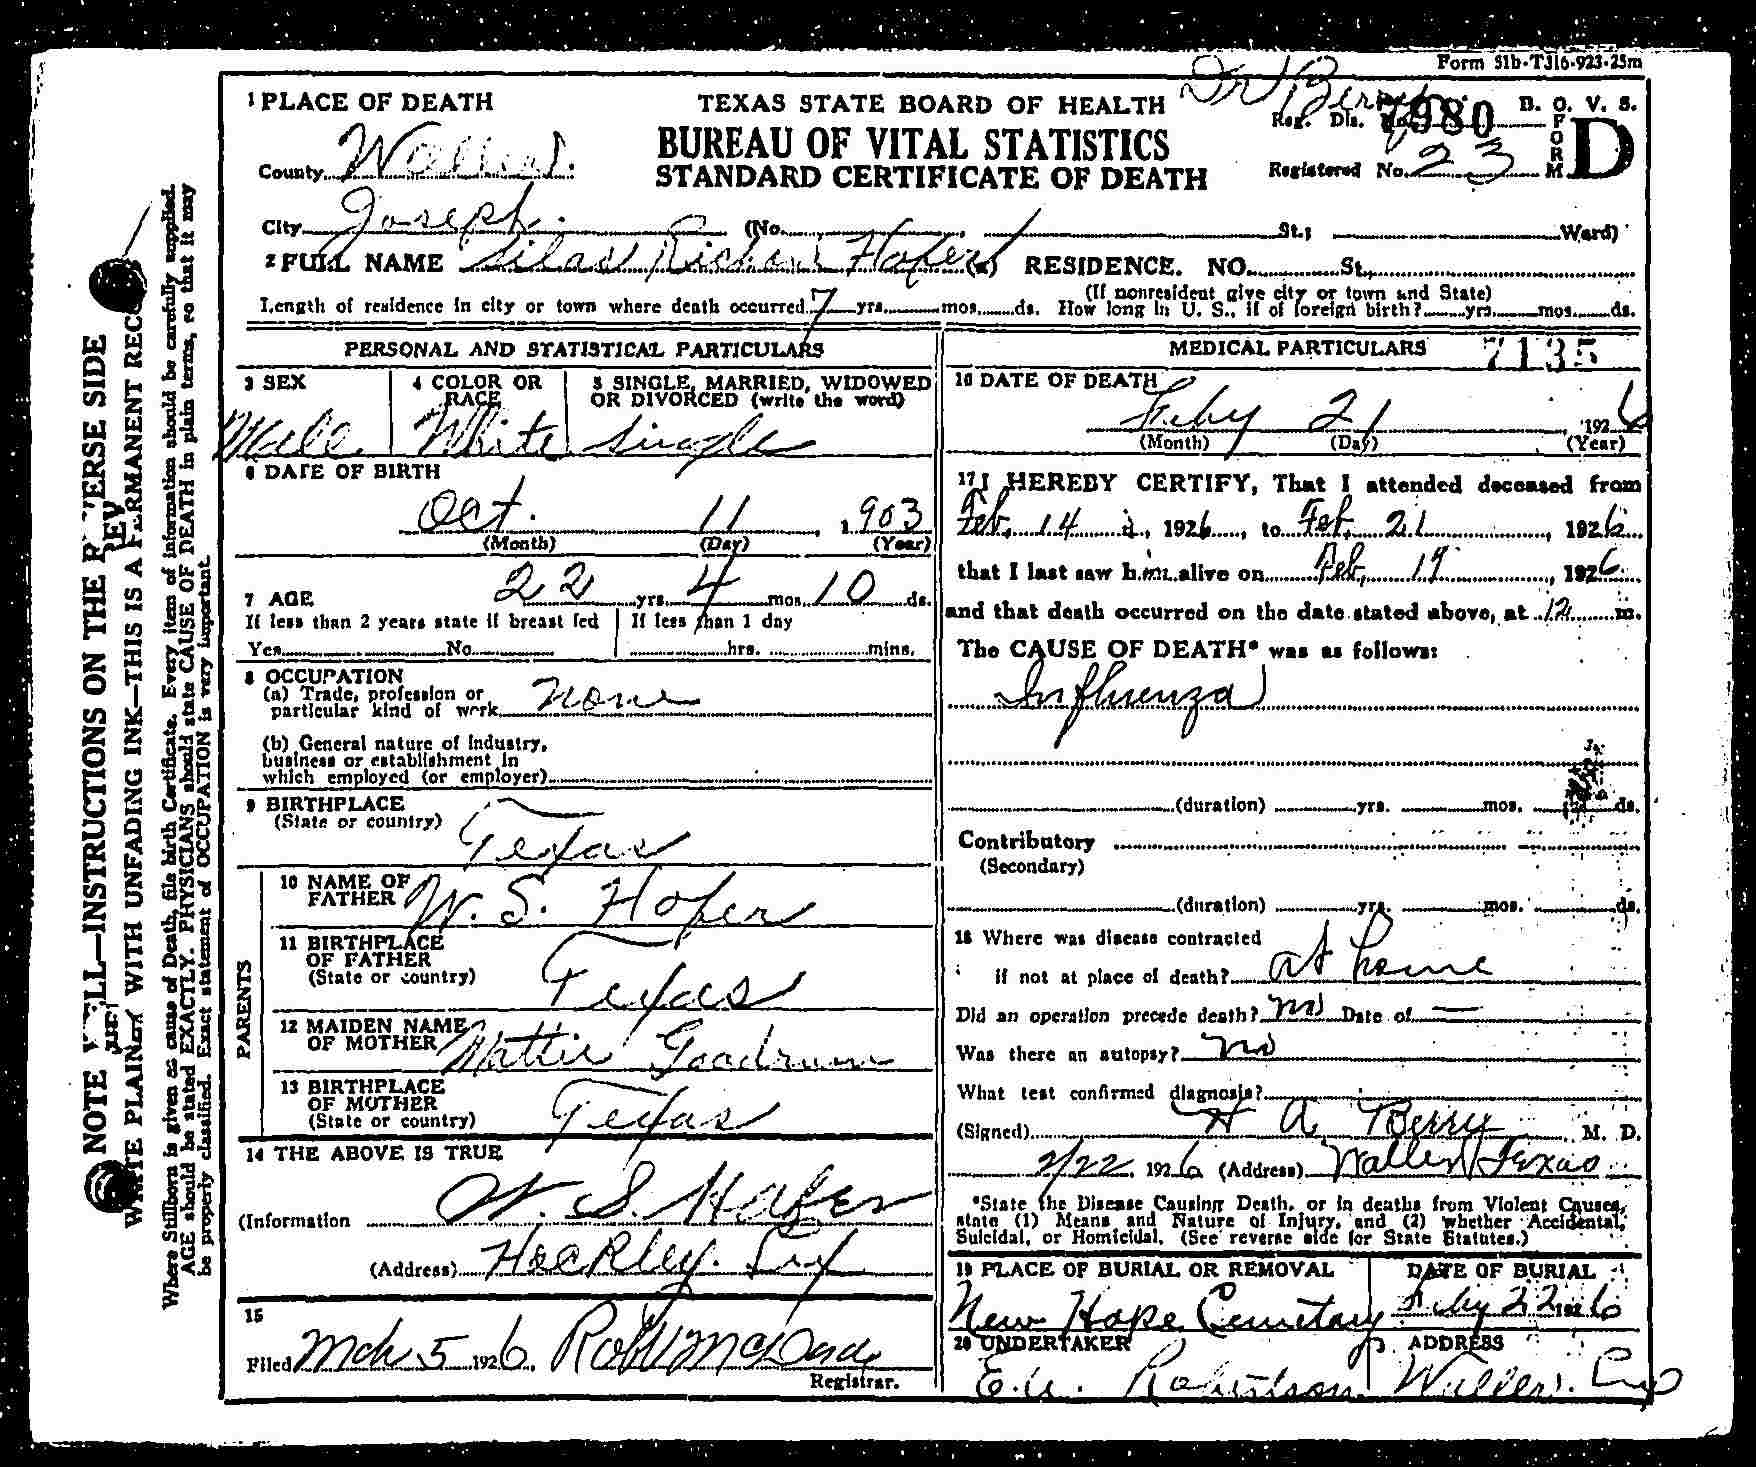 Form 51b-TJ16-923-25m
Dr Berry
1 PLACE OF DEATH
TEXAS STATE BOARD OF HEALTH
Reg. Dis. No. 7980
B. O. V. S.
FORM D
County Waller.
BUREAU OF VITAL STATISTICS
STANDARD CERTIFICATE OF DEATH
Registered No. 23
City Joseph. (No. , St.; Ward)
2 FULL NAME Silas Richard Hofer (a) RESIDENCE. NO. St.,
(If nonresident give city or town and State)
Length of residence in city or town where death occurred 7 yrs. mos. ds. How long in U. S., if of foreign birth? yrs. mos. ds.
PERSONAL AND STATISTICAL PARTICULARS
3 SEX
Male
4 COLOR OR RACE
White
5 SINGLE, MARRIED, WIDOWED
OR DIVORCED (write the word)
Single
6 DATE OF BIRTH
Oct. 11, 1903
(Month) (Day) (Year)
7 AGE 22 yrs. 4 mos. 10 ds.
If less than 2 years state if breast fed
Yes No
If less than 1 day
hrs. mins.
8 OCCUPATION
(a) Trade, profession or
particular kind of work none
(b) General nature of industry,
business or establishment in
which employed (or employer)
9 BIRTHPLACE
(State or country) Texas
PARENTS
10 NAME OF
FATHER W. S. Hofer
11 BIRTHPLACE
OF FATHER
(State or country) Texas
12 MAIDEN NAME
OF MOTHER Mattie Goodrum
13 BIRTHPLACE
OF MOTHER
(State or country) Texas
14 THE ABOVE IS TRUE
(Information W. S. Hofer
(Address) Hockley.
15
Filed Mch 5 1926,
Registrar.
MEDICAL PARTICULARS 7135
16 DATE OF DEATH
Feby 21, 1926
(Month) (Day) (Year)
17 I HEREBY CERTIFY, That I attended deceased from
Feb. 14, 1926, to Feb. 21, 1926
that I last saw him alive on Feb. 19, 1926
and that death occurred on the date stated above, at 12 m.
The CAUSE OF DEATH* was as follows:
Influenza
(duration) yrs. mos. ds.
Contributory
(Secondary)
(duration) yrs. mos. ds.
18 Where was disease contracted
if not at place of death? at home
Did an operation precede death? no Date of —
Was there an autopsy? no
What test confirmed diagnosis?
(Signed) H A Berry M. D.
2/22, 1926 (Address) Waller Texas
*State the Disease Causing Death, or in deaths from Violent Causes,
state (1) Means and Nature of Injury, and (2) whether Accidental,
Suicidal, or Homicidal. (See reverse side for State Statutes.)
19 PLACE OF BURIAL OR REMOVAL
New Hope Cemetary
DATE OF BURIAL
Feby 22 1926
20 UNDERTAKER
Robertson
ADDRESS
Waller.
NOTE WELL—INSTRUCTIONS ON THE REVERSE SIDE
WRITE PLAINLY WITH UNFADING INK—THIS IS A PERMANENT RECO
Where Stillborn is given as cause of Death, file birth Certificate. Every item of information should be carefully supplied.
AGE should be stated EXACTLY. PHYSICIANS should state CAUSE OF DEATH in plain terms, so that it may
be properly classified. Exact statement of OCCUPATION is very important.